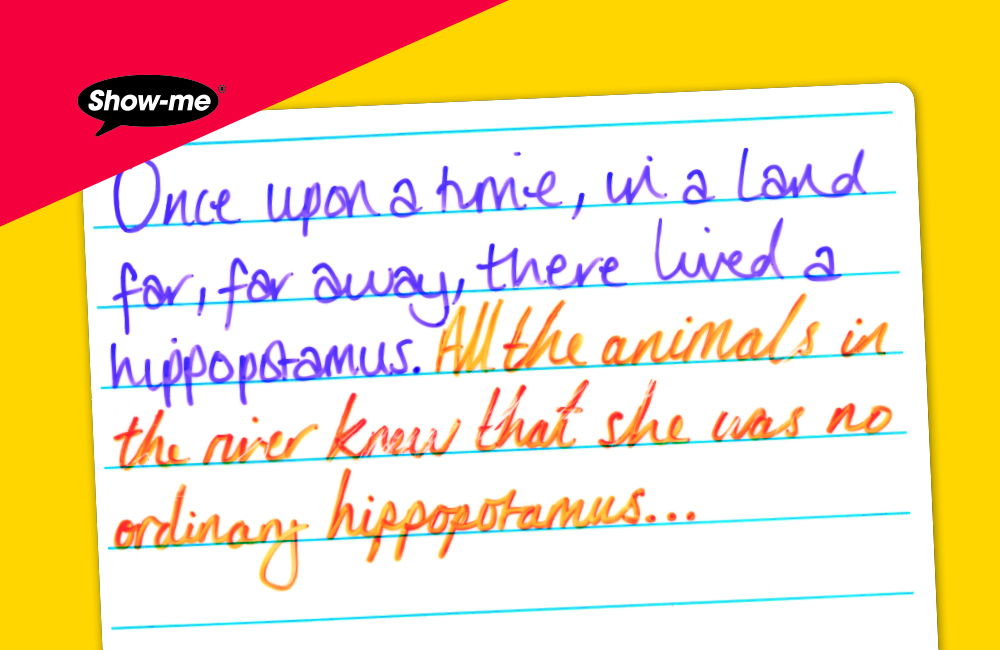 Show-me®
Once upon a time, in a land
far, far away, there lived a
hippopotamus. All the animals in
the river knew that she was no
ordinary hippopotamus...